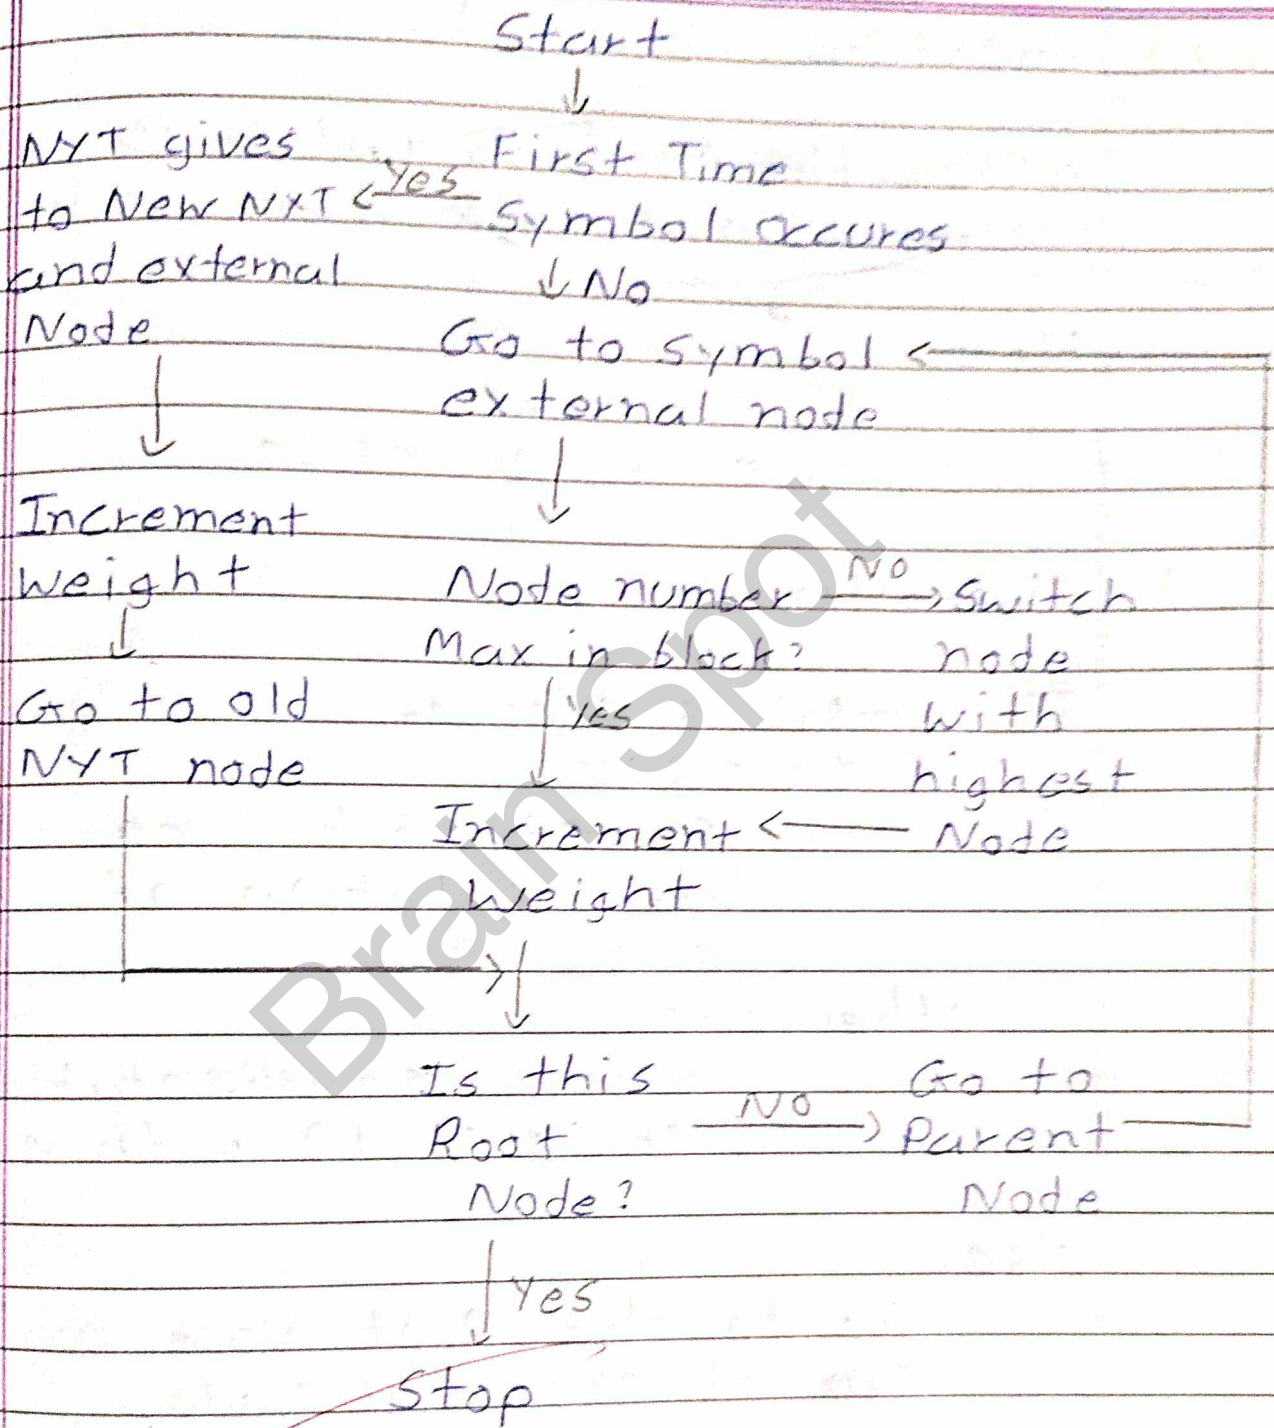 Start
First Time
Symbol Occures
Yes
NYT gives
to New NYT
and external
Node
No
Go to symbol
external node
Increment
Weight
Go to old
NYT node
Node number
Max in block?
No
Switch
node
with
highest
Node
Yes
Increment
Weight
Is this
Root
Node?
No
Go to
Parent
Node
Yes
Stop
Brain Spot